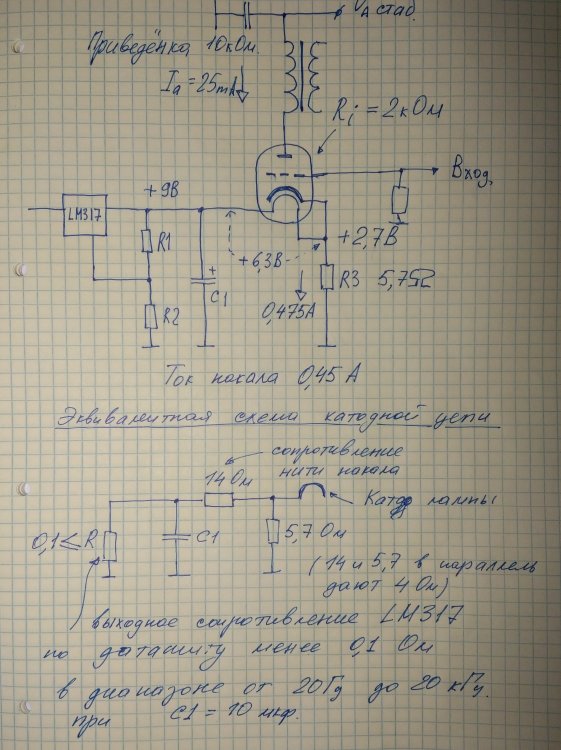 UА стаб.
Приведёнка 10кОм.
Iа = 25mA
Ri = 2кОм
Вход.
+9В
LM317
R1
+2,7В
+6,3В
R3 5,7Ω
C1
R2
0,475А
Ток накала 0,45 А
Эквивалентная схема катодной цепи
сопротивление
нити накала
14 Ом
Катод лампы
0,1 ≤ R
C1
5,7 Ом
(14 и 5,7 в параллель
дают 4 Ом)
выходное сопротивление LM317
по даташиту менее 0,1 Ом
в диапазоне от 20Гц до 20 кГц.
при C1 = 10 мкф.